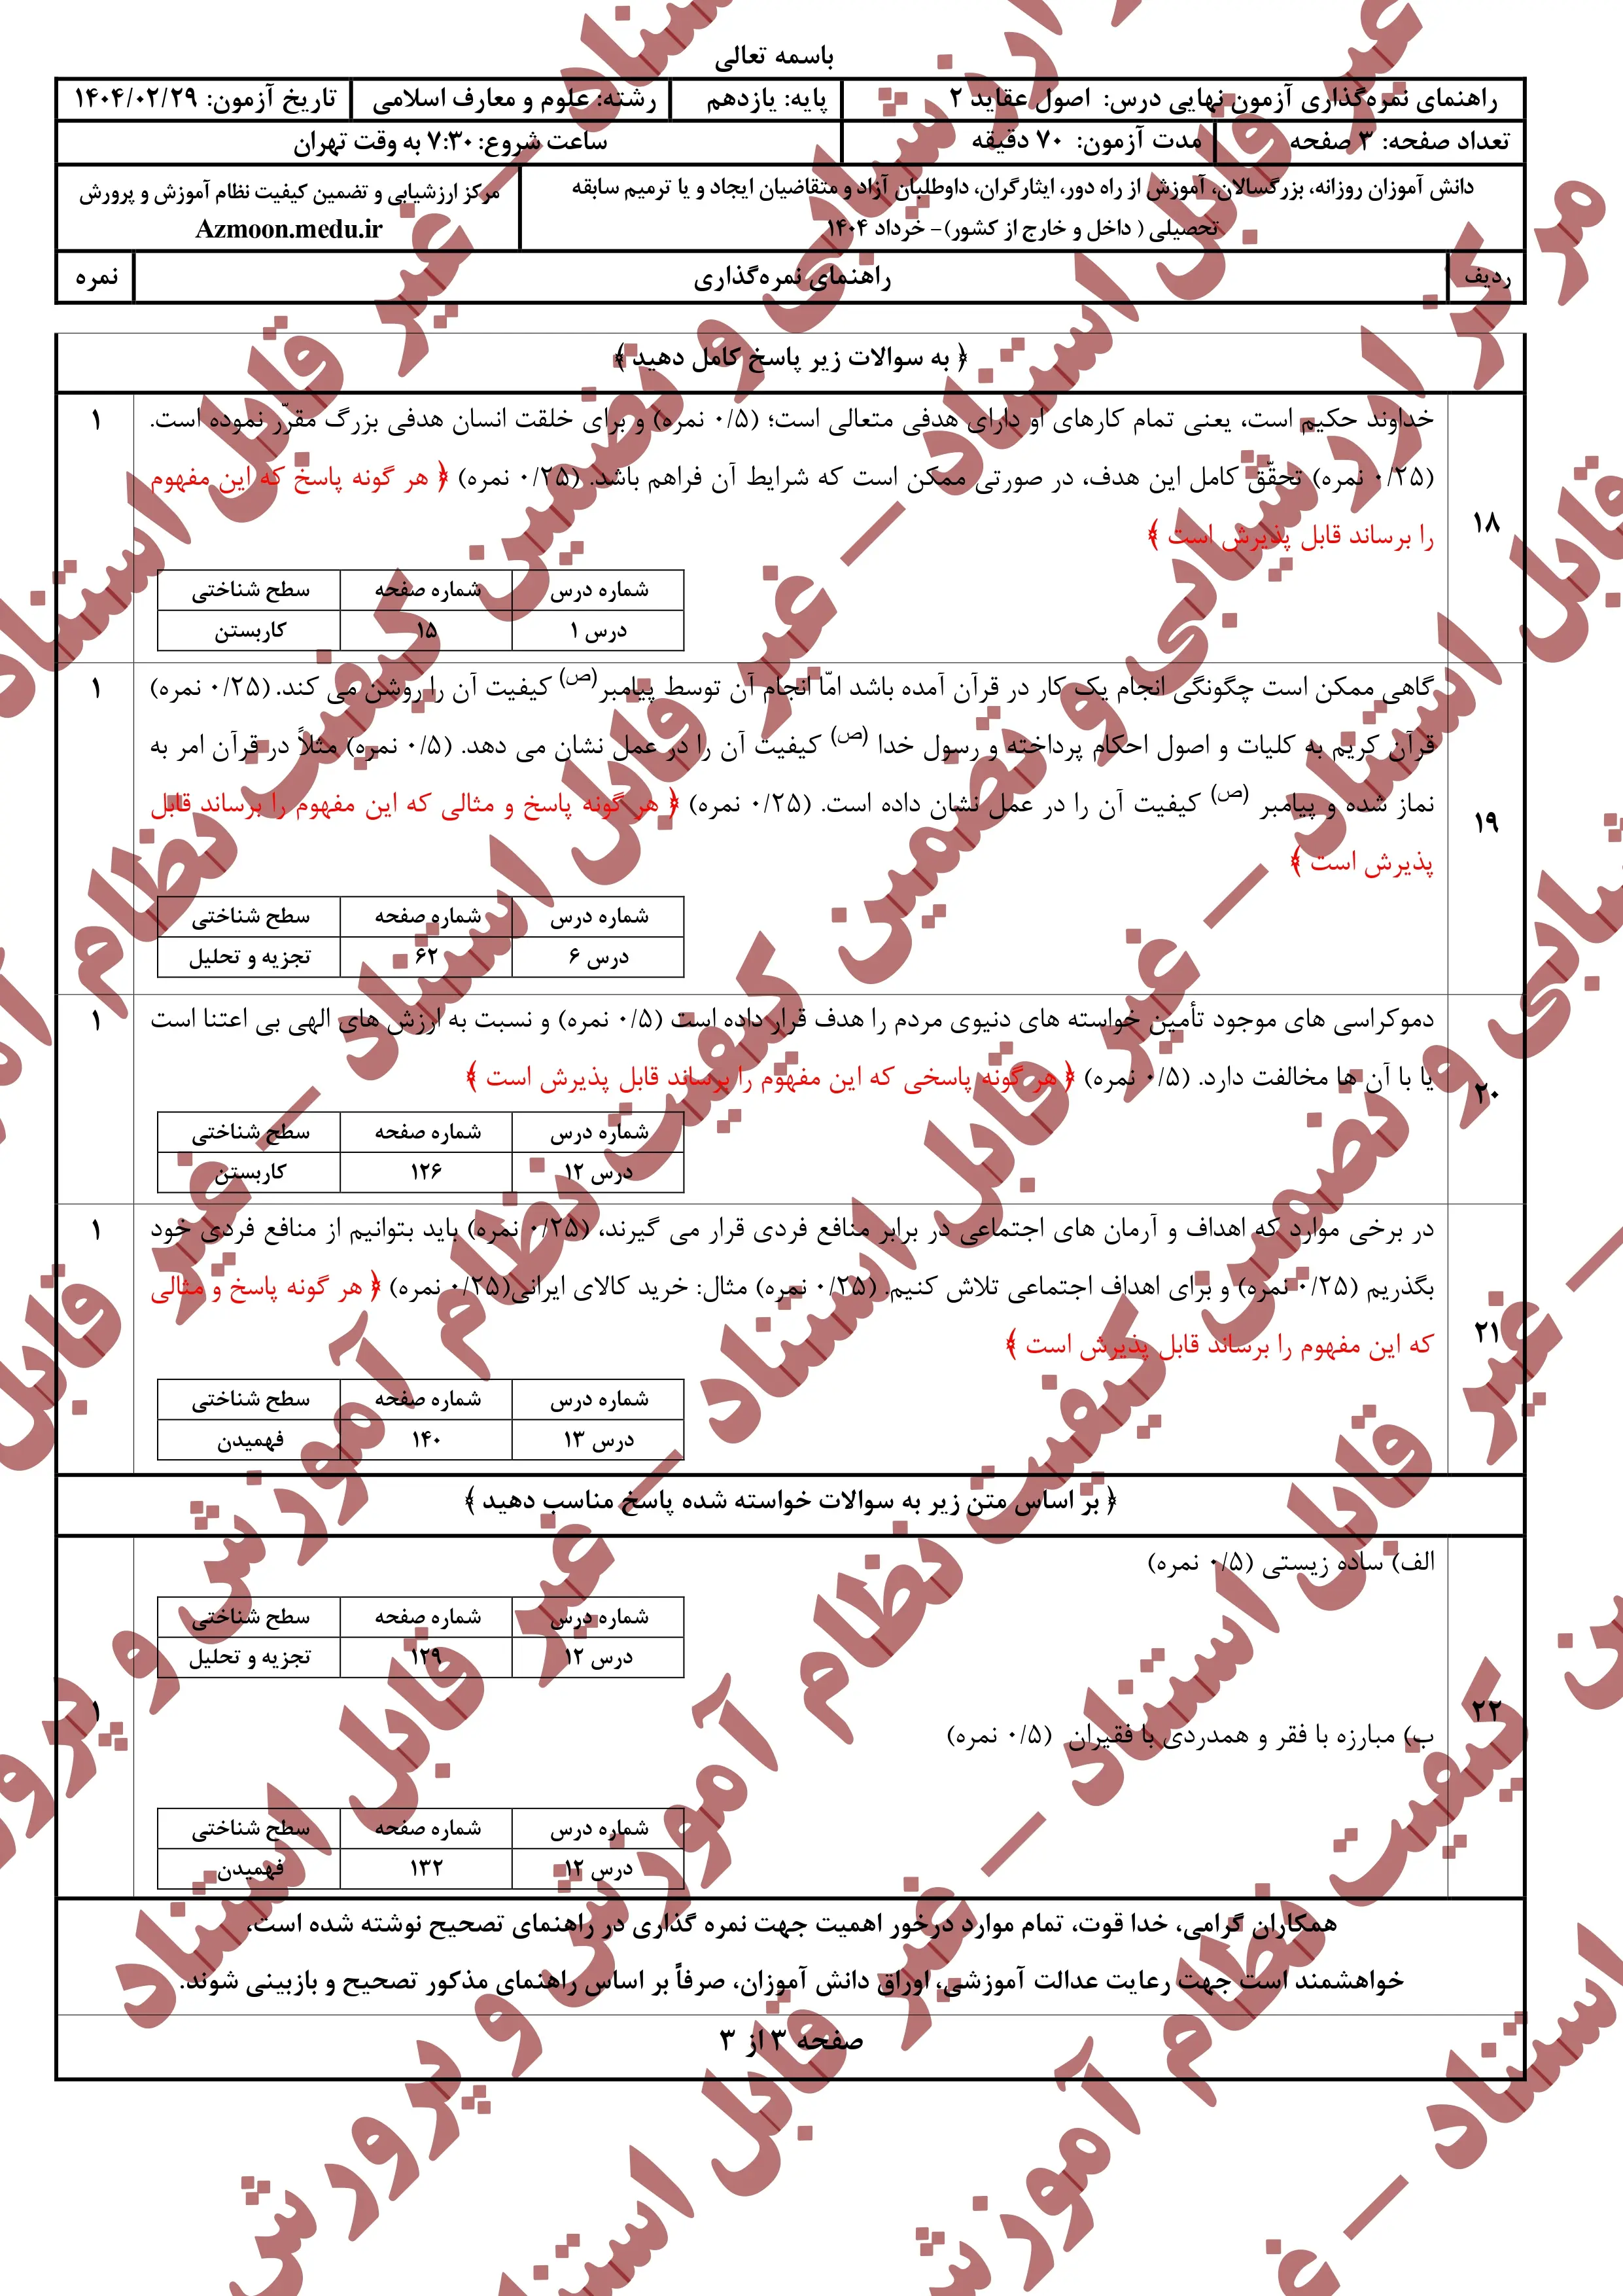 باسمه تعالی
راهنمای نمره‌گذاری آزمون نهایی درس: اصول عقاید ۲ پایه: یازدهم رشته: علوم و معارف اسلامی تاریخ آزمون: ۱۴۰۴/۰۲/۲۹
تعداد صفحه: ۳ صفحه مدت آزمون: ۷۰ دقیقه ساعت شروع: ۷:۳۰ به وقت تهران
دانش آموزان روزانه، بزرگسالان، آموزش از راه دور، ایثارگران، داوطلبان آزاد و متقاضیان ایجاد و یا ترمیم سابقه
تحصیلی ( داخل و خارج از کشور)- خرداد ۱۴۰۴
مرکز ارزشیابی و تضمین کیفیت نظام آموزش و پرورش
Azmoon.medu.ir
ردیف راهنمای نمره‌گذاری نمره
﴿ به سوالات زیر پاسخ کامل دهید ﴾
۱۸
خداوند حکیم است، یعنی تمام کارهای او دارای هدفی متعالی است؛ (۰/۵ نمره) و برای خلقت انسان هدفی بزرگ مقرّر نموده است. ۱
(۰/۲۵ نمره) تحقّق کامل این هدف، در صورتی ممکن است که شرایط آن فراهم باشد. (۰/۲۵ نمره) ﴿ هر گونه پاسخ که این مفهوم
را برساند قابل پذیرش است ﴾
شماره درس شماره صفحه سطح شناختی
درس ۱ ۱۵ کاربستن
۱۹
گاهی ممکن است چگونگی انجام یک کار در قرآن آمده باشد امّا انجام آن توسط پیامبر(ص) کیفیت آن را روشن می کند. (۰/۲۵ نمره) ۱
قرآن کریم به کلیات و اصول احکام پرداخته و رسول خدا (ص) کیفیت آن را در عمل نشان می دهد. (۰/۵ نمره) مثلاً در قرآن امر به
نماز شده و پیامبر (ص) کیفیت آن را در عمل نشان داده است. (۰/۲۵ نمره) ﴿ هر گونه پاسخ و مثالی که این مفهوم را برساند قابل
پذیرش است ﴾
شماره درس شماره صفحه سطح شناختی
درس ۶ ۶۲ تجزیه و تحلیل
۲۰
دموکراسی های موجود تأمین خواسته های دنیوی مردم را هدف قرار داده است (۰/۵ نمره) و نسبت به ارزش های الهی بی اعتنا است ۱
یا با آن ها مخالفت دارد. (۰/۵ نمره) ﴿ هر گونه پاسخی که این مفهوم را برساند قابل پذیرش است ﴾
شماره درس شماره صفحه سطح شناختی
درس ۱۲ ۱۲۶ کاربستن
۲۱
در برخی موارد که اهداف و آرمان های اجتماعی در برابر منافع فردی قرار می گیرند، (۰/۲۵ نمره) باید بتوانیم از منافع فردی خود ۱
بگذریم (۰/۲۵ نمره) و برای اهداف اجتماعی تلاش کنیم. (۰/۲۵ نمره) مثال: خرید کالای ایرانی(۰/۲۵ نمره) ﴿ هر گونه پاسخ و مثالی
که این مفهوم را برساند قابل پذیرش است ﴾
شماره درس شماره صفحه سطح شناختی
درس ۱۳ ۱۴۰ فهمیدن
﴿ بر اساس متن زیر به سوالات خواسته شده پاسخ مناسب دهید ﴾
الف) ساده زیستی (۰/۵ نمره)
شماره درس شماره صفحه سطح شناختی
درس ۱۲ ۱۲۹ تجزیه و تحلیل
۲۲ ۱
ب) مبارزه با فقر و همدردی با فقیران (۰/۵ نمره)
شماره درس شماره صفحه سطح شناختی
درس ۱۲ ۱۳۲ فهمیدن
همکاران گرامی، خدا قوت، تمام موارد درخور اهمیت جهت نمره گذاری در راهنمای تصحیح نوشته شده است،
خواهشمند است جهت رعایت عدالت آموزشی، اوراق دانش آموزان، صرفاً بر اساس راهنمای مذکور تصحیح و بازبینی شوند.
صفحه ۳ از ۳
مرکز ارزشیابی و تضمین کیفیت نظام آموزش و پرورش – غیر قابل استناد